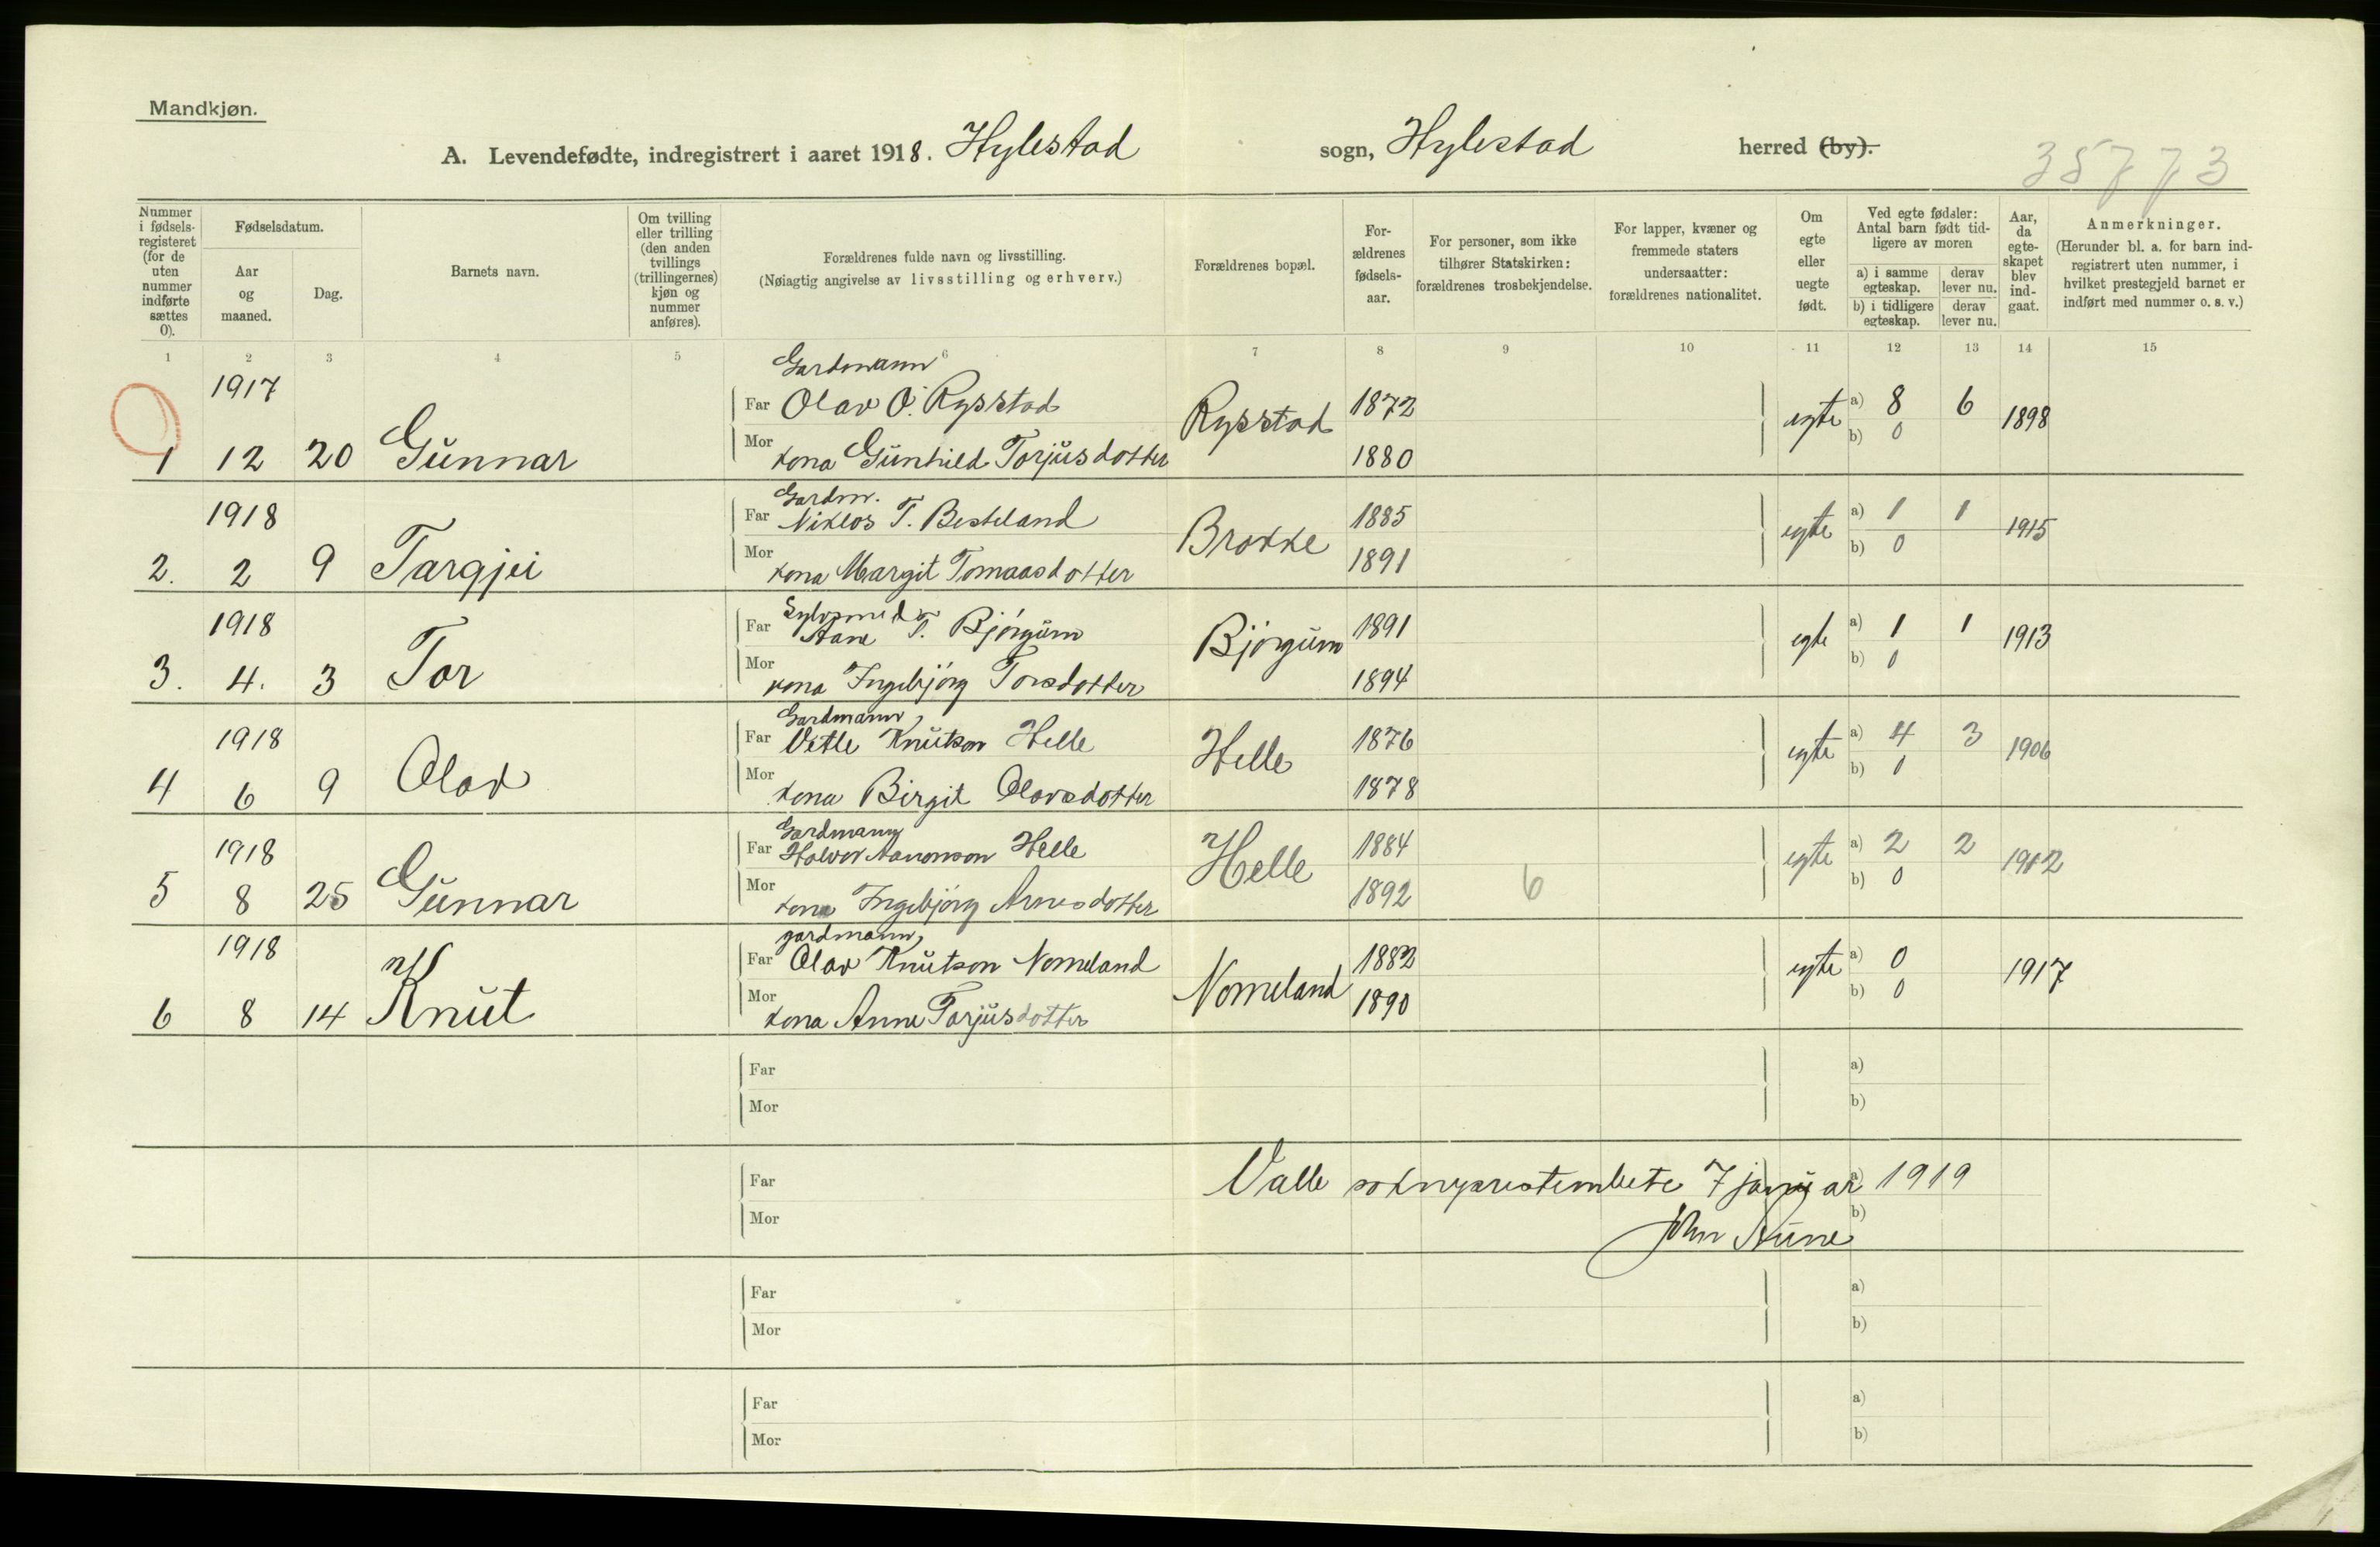 Mandkjøn.
A. Levendefødte, indregistrert i aaret 1918. Hylestad sogn, Hylestad herred (by).
35773
Nummer i fødsels-registeret (for de uten nummer indførte sættes 0).
Fødselsdatum.
Aar og maaned.
Dag.
Barnets navn.
Om tvilling eller trilling (den anden tvillings (trillingernes) kjøn og nummer anføres).
Forældrenes fulde navn og livsstilling.
(Nøiagtig angivelse av livsstilling og erhverv.)
Forældrenes bopæl.
For-ældrenes fødsels-aar.
For personer, som ikke tilhører Statskirken: forældrenes trosbekjendelse.
For lapper, kvæner og fremmede staters undersaatter: forældrenes nationalitet.
Om egte eller uegte født.
Ved egte fødsler: Antal barn født tid-ligere av moren
a) i samme egteskap.
derav lever nu.
b) i tidligere egteskap.
derav lever nu.
Aar, da egte-skapet blev ind-gaat.
Anmerkninger.
(Herunder bl. a. for barn ind-registrert uten nummer, i hvilket prestegjeld barnet er indført med nummer o. s. v.)
1 2 3 4 5 6 7 8 9 10 11 12 13 14 15
1917 Gardmann
Far Olav O. Rysstad Rysstad 1872 egte a) 8 6 1898
1 12 20 Gunnar Mor kona Gunhild Torjusdotter 1880 b) 0
1918 Gardm.
Far Niklos T. Besteland Brokke 1885 egte a) 1 1 1915
2. 2 9 Targjei Mor kona Margit Tomaasdotter 1891 b) 0
1918 Sylvsmed
Far Aane T. Bjørgum Bjørgum 1891 egte a) 1 1 1913
3. 4. 3 Tor Mor kona Ingebjørg Torsdotter 1894 b) 0
1918 Gardmann,
Far Vetle Knutson Helle Helle 1876 egte a) 4 3 1906
4 6 9 Olav Mor kona Birgit Olavsdotter 1878 b) 0
1918 Gardmann
Far Halvor Aanonson Helle Helle 1884 egte a) 2 2 1912
5 8 25 Gunnar Mor kona Ingebjørg Arnesdotter 1892 6 b) 0
1918 gardmann,
Far Olav Knutson Nomeland Nomeland 1882 egte a) 0 1917
6 8 14 Knut Mor kona Anne Torjusdotter 1890 b) 0
Far a)
Mor b)
Far Valle soknprestembete 7 januar a) 1919
Mor b)
John
Far a)
Mor b)
Far a)
Mor b)